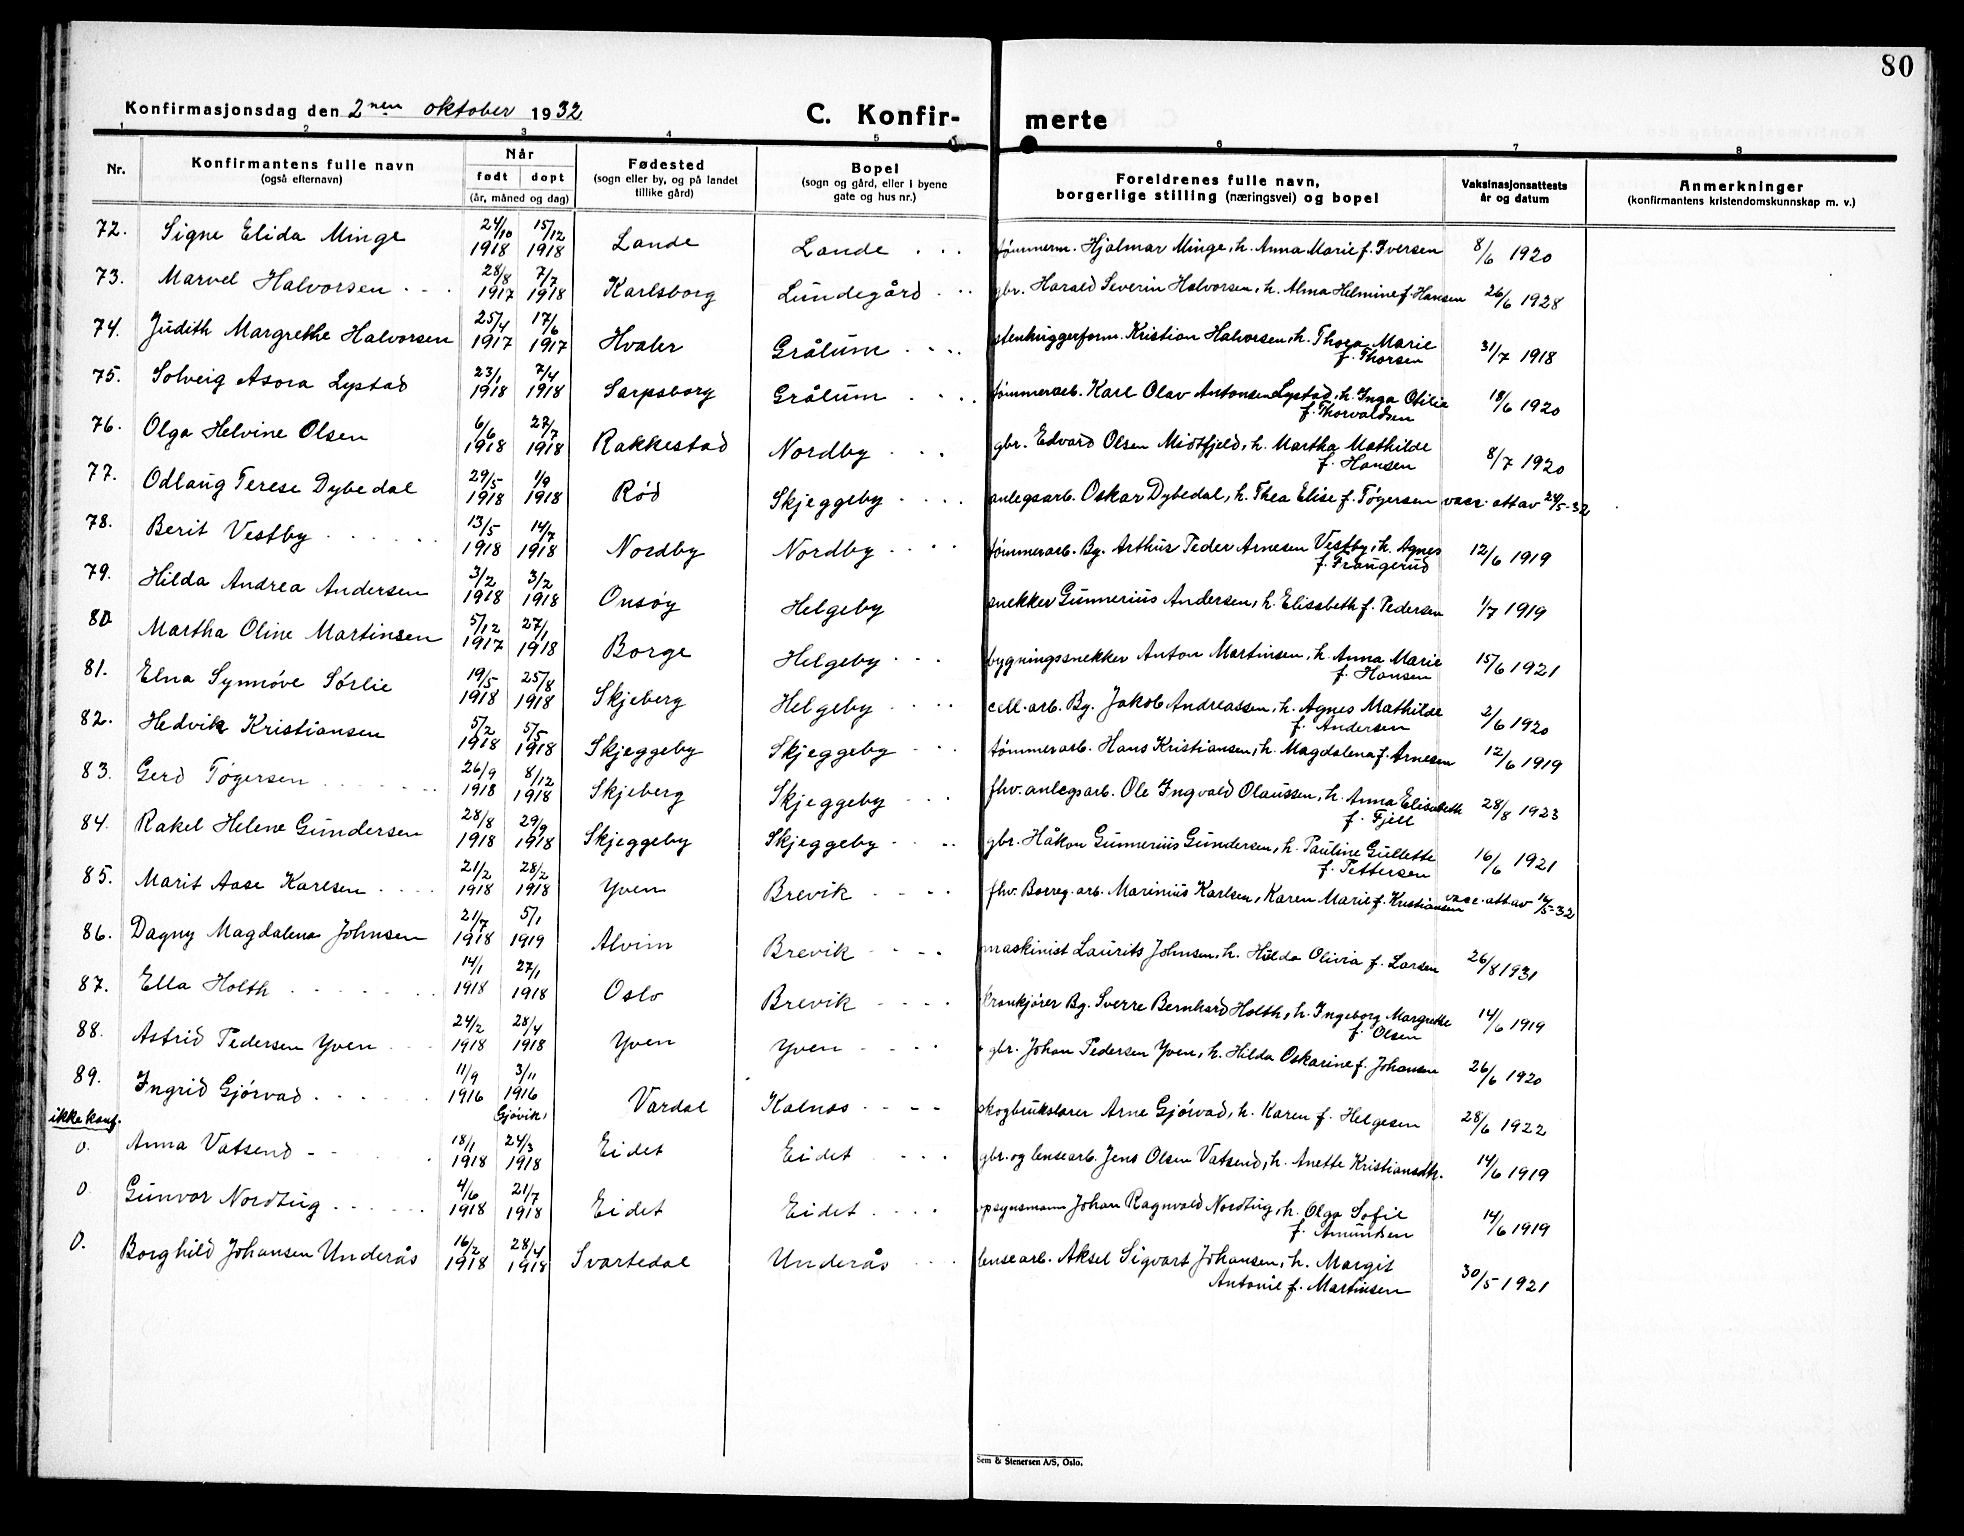 80
Konfirmasjonsdag den 2nen oktober 1932 C. Konfir- merte
1 2 3 4 5 6 7 8
Nr. Konfirmantens fulle navn (også efternavn) Når født døpt (år, måned og dag) Fødested (sogn eller by, og på landet tillike gård) Bopel (sogn og gård, eller i byene gate og hus nr.) Foreldrenes fulle navn, borgerlige stilling (næringsvei) og bopel Vaksinasjonsattests år og datum Anmerkninger (konfirmantens kristendomskunnskap m. v.)
72. Signe Elida Minge 24/10 1918 15/12 1918 Lande Lande tømmerm. Hjalmar Minge, h. Anna Marie f. Iversen 8/6 1920
73. Marvel Halvorsen 28/8 1917 7/7 1918 Karlsborg Lundegård gbr. Harald Severin Halvorsen, h. Alma Helmine f. Hansen 26/6 1928
74. Judith Margrethe Halvorsen 25/4 1917 17/6 1917 Hvaler Grålum stenhuggerform. Kristian Halvorsen, h. Thora Marie f. Thorsen 31/7 1918
75. Solveig Asora Lystad 23/1 1918 7/4 1918 Sarpsborg Grålum tømmerarb. Karl Olav Antonsen Lystad, h. Inga Otilie f. Thorvaldsen 18/6 1920
76. Olga Helvine Olsen 6/6 1918 27/7 1918 Rakkestad Nordby gbr. Edvard Olsen Midtfjeld, h. Martha Mathilde f. Hansen 8/7 1920
77. Odlaug Terese Dybedal 29/5 1918 1/9 1918 Rød Skjeggeby anlegsarb. Oskar Dybedal, h. Thea Elise f. Tøgersen vacc. att av 24/5-32
78. Berit Vestby 13/5 1918 14/7 1918 Nordby Nordby tømmerarb. Bg. Arthur Peder Arnesen Vestby, h. Agnes f. Fraugerud 12/6 1919
79. Hilda Andrea Andersen 3/2 1918 3/2 1918 Onsøy Helgeby snekker Gunnerius Andersen, h. Elisabeth f. Pedersen 1/7 1919
80 Martha Oline Martinsen 5/12 1917 27/1 1918 Borge Helgeby bygningssnekker Anton Martinsen, h. Anna Marie f. Hansen 15/6 1921
81. Elna Synnøve Sørlie 19/5 1918 25/8 1918 Skjeberg Helgeby cell. arb. Bg. Jakob Andreassen, h. Agnes Mathilde f. Andersen 2/6 1920
82. Hedvik Kristiansen 5/2 1918 5/5 1918 Skjeggeby Skjeggeby tømmerarb. Hans Kristiansen, h. Magdalena f. Arnesen 12/6 1919
83. Gerd Tøgersen 26/9 1918 8/12 1918 Skjeberg Skjeggeby fhv. anlegsarb. Ole Ingvald Olaussen, h. Anna Elisabeth f. Fjell 28/8 1923
84. Rakel Helene Gundersen 28/8 1918 29/9 1918 Skjeggeby Skjeggeby gbr. Håkon Gunnerius Gundersen, h. Pauline Gullette f. Pettersen 16/6 1921
85. Marit Aase Karlsen 21/2 1918 28/2 1918 Yven Brevik fhv. Borreg. arb. Marinius Karlsen, Karen Marie f. Kristiansen vacc. att av 14/5-32
86. Dagny Magdalena Johnsen 21/7 1918 5/1 1919 Alvim Brevik maskinist Laurits Johnsen, h. Hilda Olivia f. Larsen 26/8 1931
87. Ella Holth 14/1 1918 27/1 1918 Oslo Brevik krankjører Bg. Sverre Bernhard Holth, h. Ingeborg Margrethe f. Olsen 14/6 1919
88. Astrid Pedersen Yven 24/2 1918 28/4 1918 Yven Yven gbr. Johan Pedersen Yven, h. Hilda Oskarine f. Johansen 26/6 1920
89. Ingrid Gjörvad 11/9 1916 3/11 1916 Gjøvik Vardal Kalnes skogbrukslærer Arne Gjörvad, h. Karen f. Helgesen 28/6 1922
ikke konf.
0. Anna Vatsend 18/1 1918 24/3 1918 Eidet Eidet gbr. og lensearb. Jens Olsen Vatsend, h. Anette Kristiansdtr. 14/6 1919
0 Gunvor Nordtug 4/6 1918 21/7 1918 Eidet Eidet opsynsmann Johan Ragnvald Nordtug, h. Olga Sofie f. Amundsen 14/6 1919
0. Borghild Johansen Underås 16/2 1918 28/4 1918 Svartedal Underås lensearb. Aksel Sigvart Johansen, h. Margit Antonie f. Martinsen 30/5 1921
Sem & Stenersen A/S, Oslo.